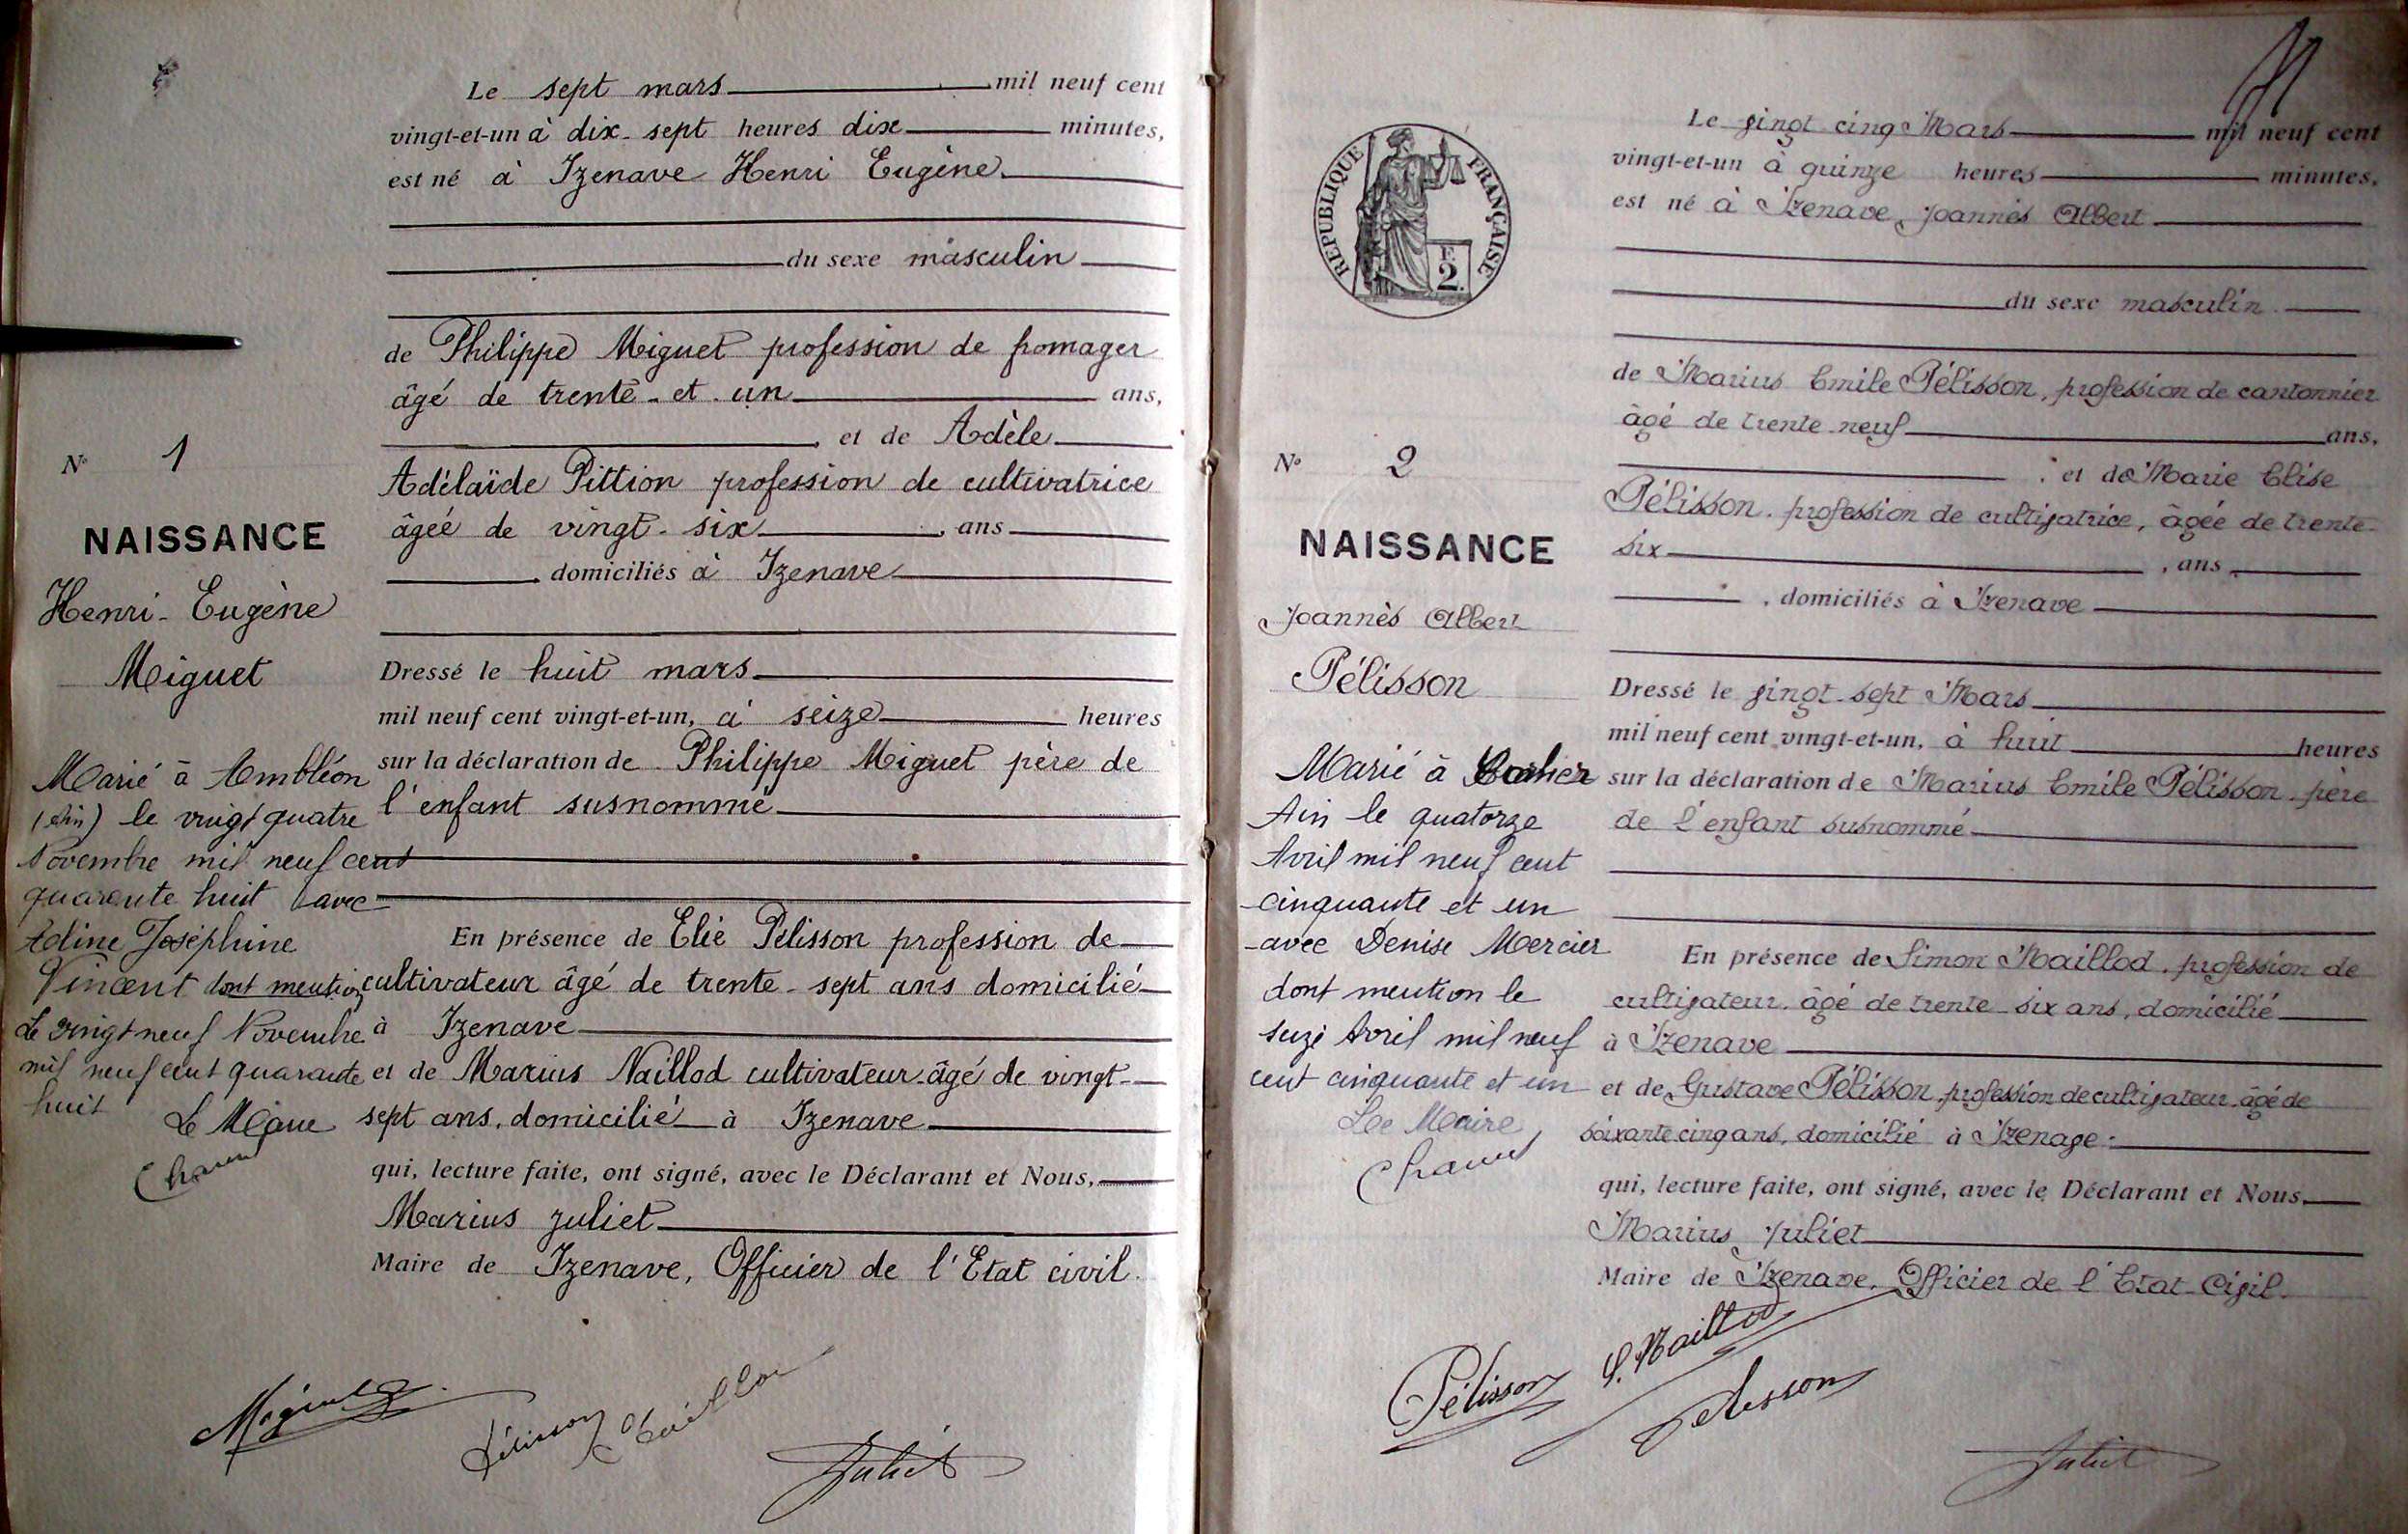 Le sept mars mil neuf cent
vingt-et-un à dix-sept heures dix minutes,
est né à Izenave Henri Eugène
du sexe masculin
de Philippe Miguet profession de fromager
âgé de trente-et-un ans,
et de Adèle
Adélaïde Pittion profession de cultivatrice
âgée de vingt-six, ans
domiciliés à Izenave
Dressé le huit mars
mil neuf cent vingt-et-un, à seize heures
sur la déclaration de Philippe Miguet père de
l'enfant susnommé
En présence de Elie Pélisson profession de
cultivateur âgé de trente-sept ans domicilié
à Izenave
et de Marius Naillod cultivateur âgé de vingt-
sept ans, domicilié à Izenave
qui, lecture faite, ont signé, avec le Déclarant et Nous,
Marius Juliet
Maire de Izenave, Officier de l'Etat civil.
N° 1
NAISSANCE
Henri-Eugène
Miguet
Marié à Ambléon
(Ain) le vingt quatre
Novembre mil neuf cent
quarante huit avec
Adine Joséphine
Vincent dont mention
Le vingt neuf Novembre
mil neuf cent quarante
huit
Le Maire
Miguet
Pélisson
Naillod
Juliet
Le vingt cinq Mars mil neuf cent
vingt-et-un à quinze heures minutes,
est né à Izenave, Joannès Albert
du sexe masculin
de Marius Emile Pélisson, profession de cantonnier
âgé de trente-neuf ans,
et de Marie Elise
Pélisson, profession de cultivatrice, âgée de trente-
six, ans
, domiciliés à Izenave
Dressé le vingt-sept Mars
mil neuf cent vingt-et-un, à huit heures
sur la déclaration de Marius Emile Pélisson, père
de l'enfant susnommé
En présence de Simon Naillod, profession de
cultivateur, âgé de trente-six ans, domicilié
à Izenave
et de Gustave Pélisson, profession de cultivateur, âgé de
soixante cinq ans, domicilié à Izenave
qui, lecture faite, ont signé, avec le Déclarant et Nous,
Marius Juliet
Maire de Izenave, Officier de l'Etat Civil.
REPUBLIQUE FRANÇAISE
F. 2.
N° 2
NAISSANCE
Joannès Albert
Pélisson
Marié à
Ain le quatorze
Avril mil neuf cent
cinquante et un
avec Denise Mercier
dont mention le
seize Avril mil neuf
cent cinquante et un
Le Maire
Pélisson
S. Naillod
Pélisson
Juliet